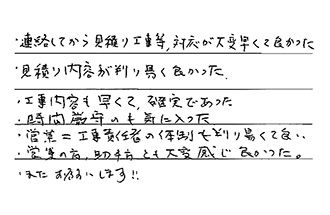 ・連絡してから見積り工事等、対応が大変早くて良かった
見積り内容が判り易く良かった。
・工事内容も早くて、確実であった
・時間厳守のも気に入った
・営業=工事責任者の体制も判り易くて良い。
・営業の方、助手方とも大変感じ良かった。
・またお願いします!!